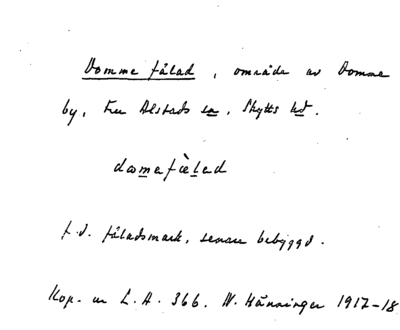 Domme fälad, område av Domme
by, Fru Alstads sn, Skytts hd.
doṃefælad
f.d. fäladsmark, senare bebyggd.
Kop. ur L.A. 366. N. Hänninger 1917-18